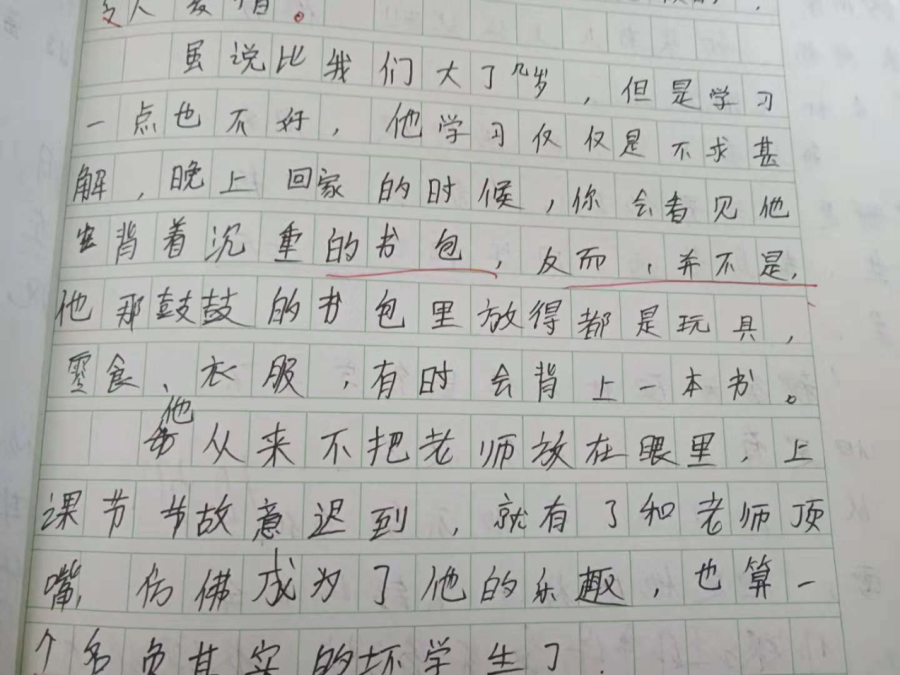 文人
虽说比我们大了几岁，但是学习
一点也不好，他学习仅仅是不求甚
解，晚上回家的时候，你会看见他
背着沉重的书包，反而，并不是，
他那鼓鼓的书包里放得都是玩具，
零食、衣服，有时会背上一本书。
他从来不把老师放在眼里，上
课节节故意迟到，就有了和老师顶
嘴，仿佛成为了他的乐趣，也算一
个名负其实的坏学生了